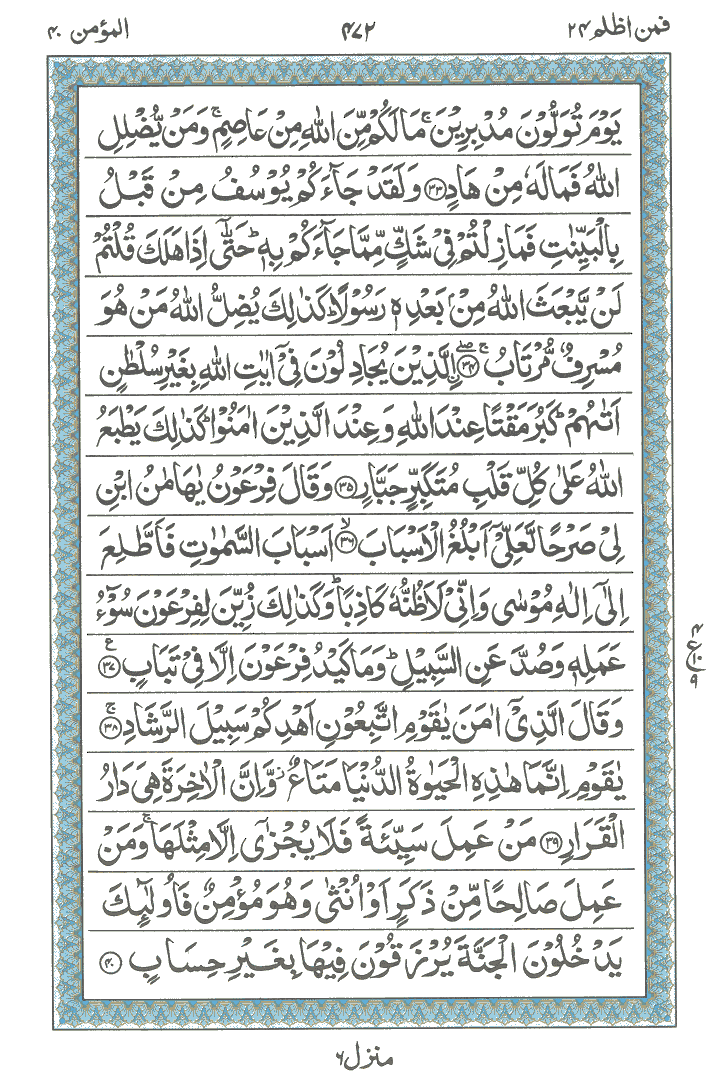 فمن اظلم ٢٤
٤٧٢
المؤمن ٤٠
يَوْمَ تُوَلُّوْنَ مُدْبِرِيْنَ ۚ مَا لَكُمْ مِّنَ اللّٰهِ مِنْ عَاصِمٍ ۚ وَمَنْ يُّضْلِلِ
اللّٰهُ فَمَا لَهٗ مِنْ هَادٍ ﴿٣٣﴾ وَلَقَدْ جَآءَكُمْ يُوْسُفُ مِنْ قَبْلُ
بِالْبَيِّنٰتِ فَمَا زِلْتُمْ فِيْ شَكٍّ مِّمَّا جَآءَكُمْ بِهٖ ؕ حَتّٰۤى اِذَا هَلَكَ قُلْتُمْ
لَنْ يَّبْعَثَ اللّٰهُ مِنْۢ بَعْدِهٖ رَسُوْلًا ؕ كَذٰلِكَ يُضِلُّ اللّٰهُ مَنْ هُوَ
مُسْرِفٌ مُّرْتَابُ ۚ ﴿٣٤﴾ ۖ ۨالَّذِيْنَ يُجَادِلُوْنَ فِيْۤ اٰيٰتِ اللّٰهِ بِغَيْرِ سُلْطٰنٍ
اَتٰىهُمْ ؕ كَبُرَ مَقْتًا عِنْدَ اللّٰهِ وَعِنْدَ الَّذِيْنَ اٰمَنُوْا ؕ كَذٰلِكَ يَطْبَعُ
اللّٰهُ عَلٰى كُلِّ قَلْبِ مُتَكَبِّرٍ جَبَّارٍ ﴿٣٥﴾ وَقَالَ فِرْعَوْنُ يٰهَامٰنُ ابْنِ
لِيْ صَرْحًا لَّعَلِّيْۤ اَبْلُغُ الْاَسْبَابَ ۙ ﴿٣٦﴾ اَسْبَابَ السَّمٰوٰتِ فَاَطَّلِعَ
اِلٰۤى اِلٰهِ مُوْسٰى وَاِنِّيْ لَاَظُنُّهٗ كَاذِبًا ؕ وَكَذٰلِكَ زُيِّنَ لِفِرْعَوْنَ سُوْٓءُ
عَمَلِهٖ وَصُدَّ عَنِ السَّبِيْلِ ؕ وَمَا كَيْدُ فِرْعَوْنَ اِلَّا فِيْ تَبَابٍ ﴿٣٧﴾ ع
وَقَالَ الَّذِيْۤ اٰمَنَ يٰقَوْمِ اتَّبِعُوْنِ اَهْدِكُمْ سَبِيْلَ الرَّشَادِ ۚ ﴿٣٨﴾
يٰقَوْمِ اِنَّمَا هٰذِهِ الْحَيٰوةُ الدُّنْيَا مَتَاعٌ ؗ وَّاِنَّ الْاٰخِرَةَ هِيَ دَارُ
الْقَرَارِ ﴿٣٩﴾ مَنْ عَمِلَ سَيِّئَةً فَلَا يُجْزٰۤى اِلَّا مِثْلَهَا ۚ وَمَنْ
عَمِلَ صَالِحًا مِّنْ ذَكَرٍ اَوْ اُنْثٰى وَهُوَ مُؤْمِنٌ فَاُولٰٓئِكَ
يَدْخُلُوْنَ الْجَنَّةَ يُرْزَقُوْنَ فِيْهَا بِغَيْرِ حِسَابٍ ﴿٤٠﴾
٤
ع ١٠
٩
منزل ٦